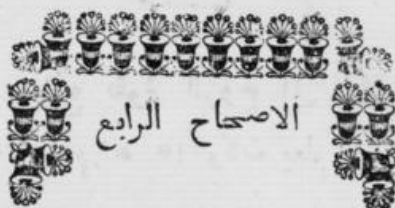 الاصحاح الرابع